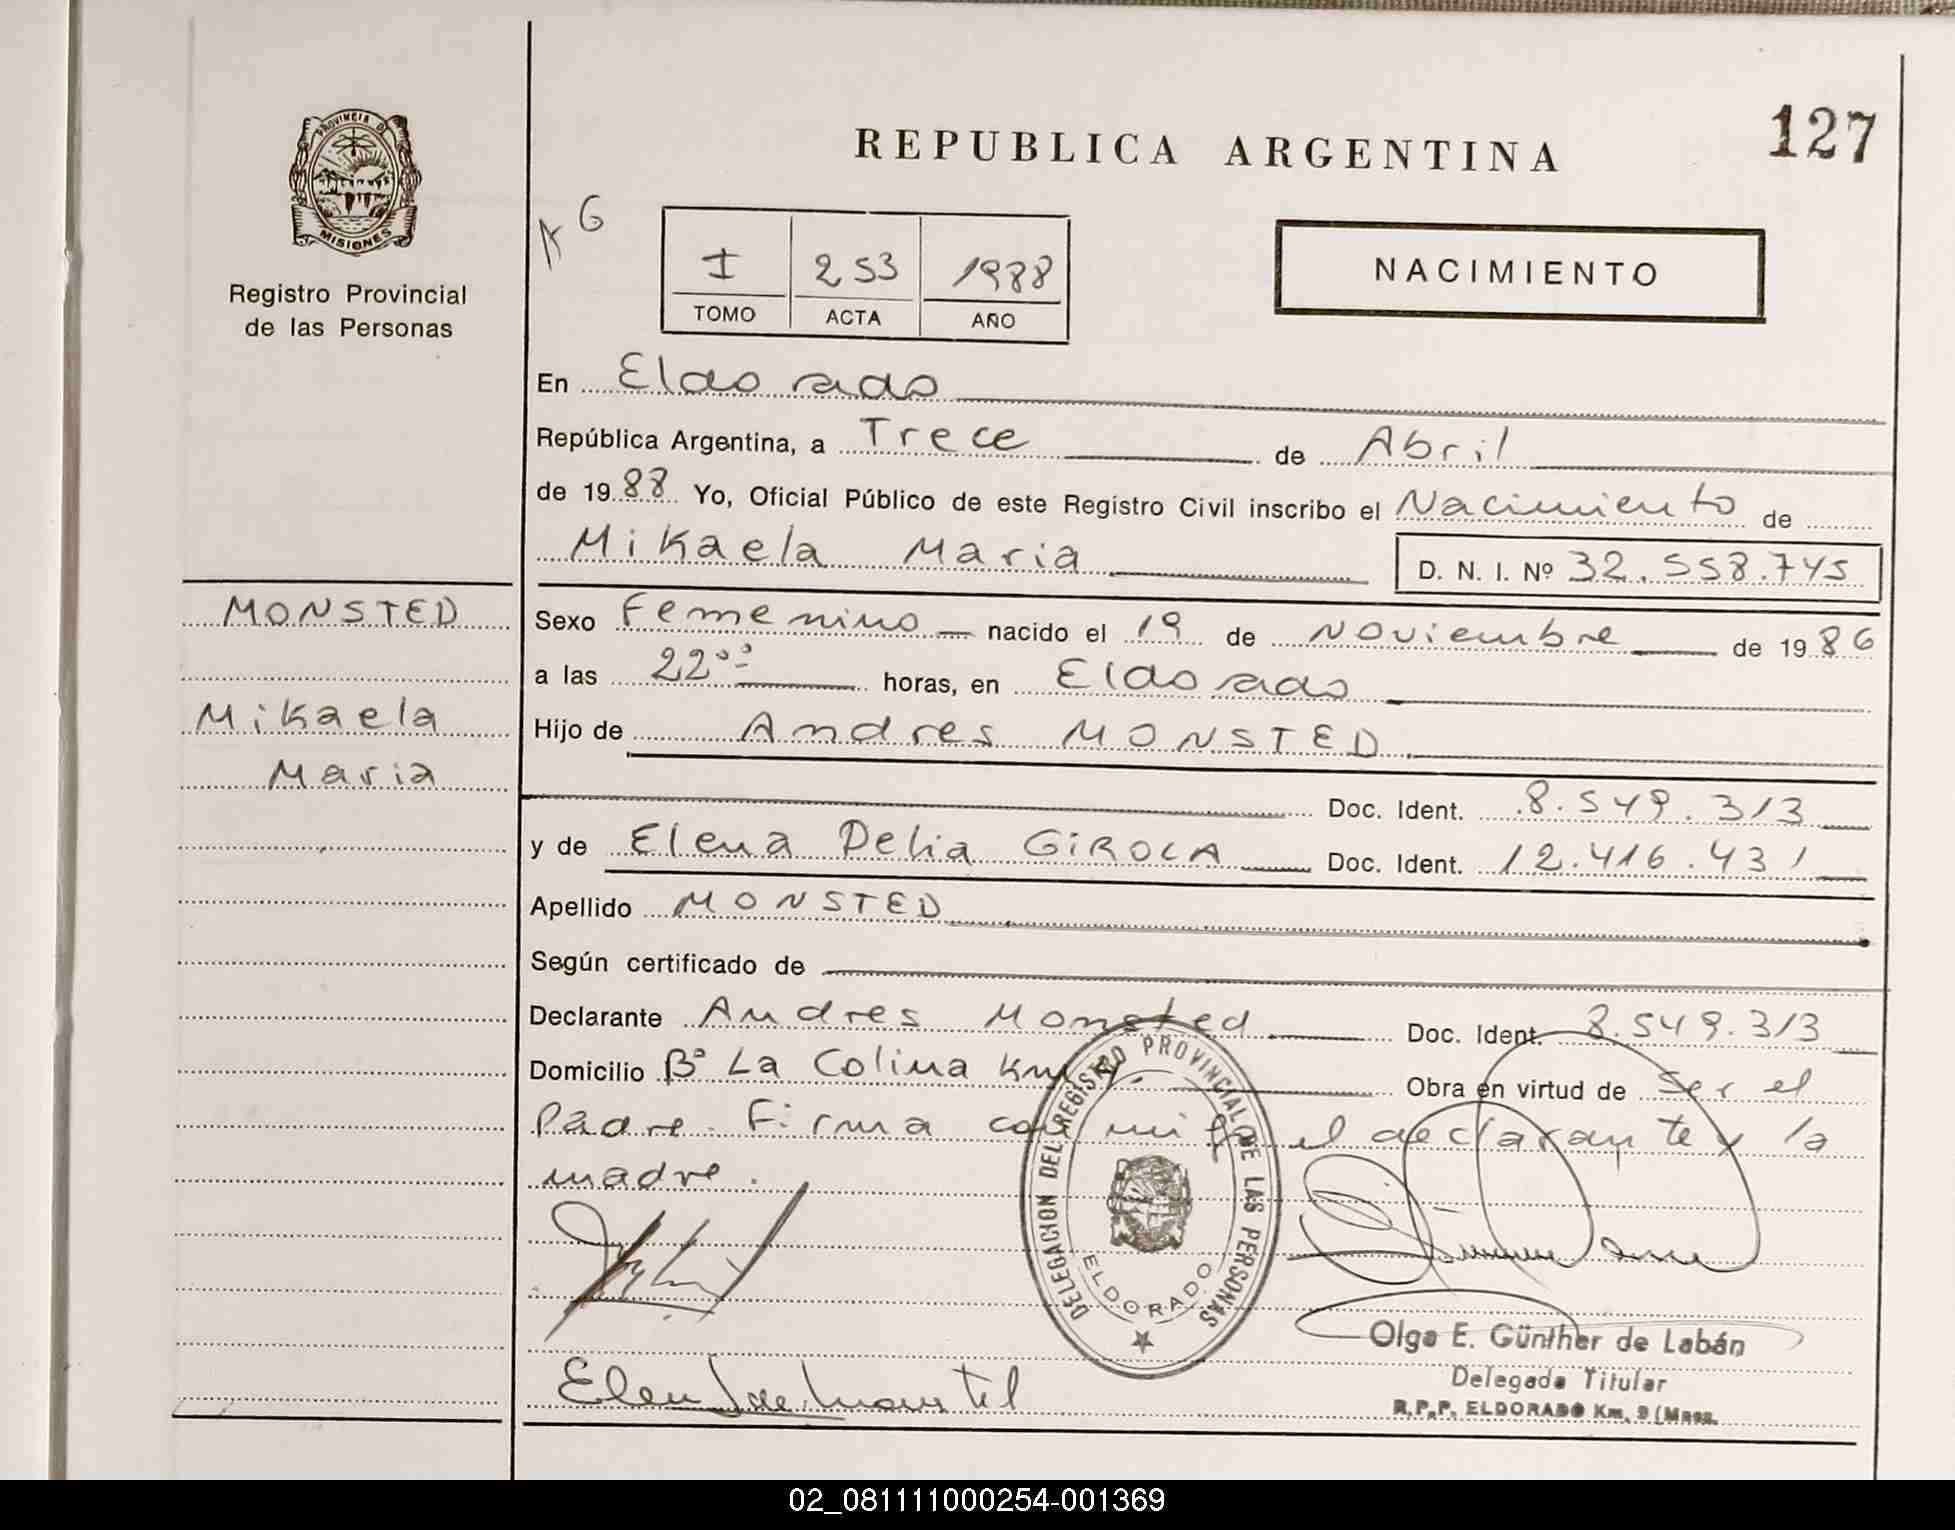 127
REPUBLICA ARGENTINA
PROVINCIA DE
MISIONES
Registro Provincial
de las Personas
A 6
I 253 1988
TOMO ACTA AÑO
NACIMIENTO
En Eldorado
República Argentina, a Trece de Abril
de 1988 Yo, Oficial Público de este Registro Civil inscribo el Nacimiento de
Mikaela Maria D. N. I. Nº 32.558.745
MONSTED
Mikaela
Maria
Sexo Femenino nacido el 19 de Noviembre de 1986
a las 22°° horas, en Eldorado
Hijo de Andres MONSTED
Doc. Ident. 8.549.313
y de Elena Delia GIROLA Doc. Ident. 12.416.431
Apellido MONSTED
Según certificado de
Declarante Andres Monsted Doc. Ident. 8.549.313
Domicilio Bº La Colina Km Obra en virtud de Ser el
Padre. Firma conmigo el declarante y la
madre.
DELEGACION DEL REGISTRO PROVINCIAL DE LAS PERSONAS
ELDORADO
Olga E. Günther de Labán
Delegada Titular
R.P.P. ELDORADO Km. 9 (Mnes.
02_081111000254-001369